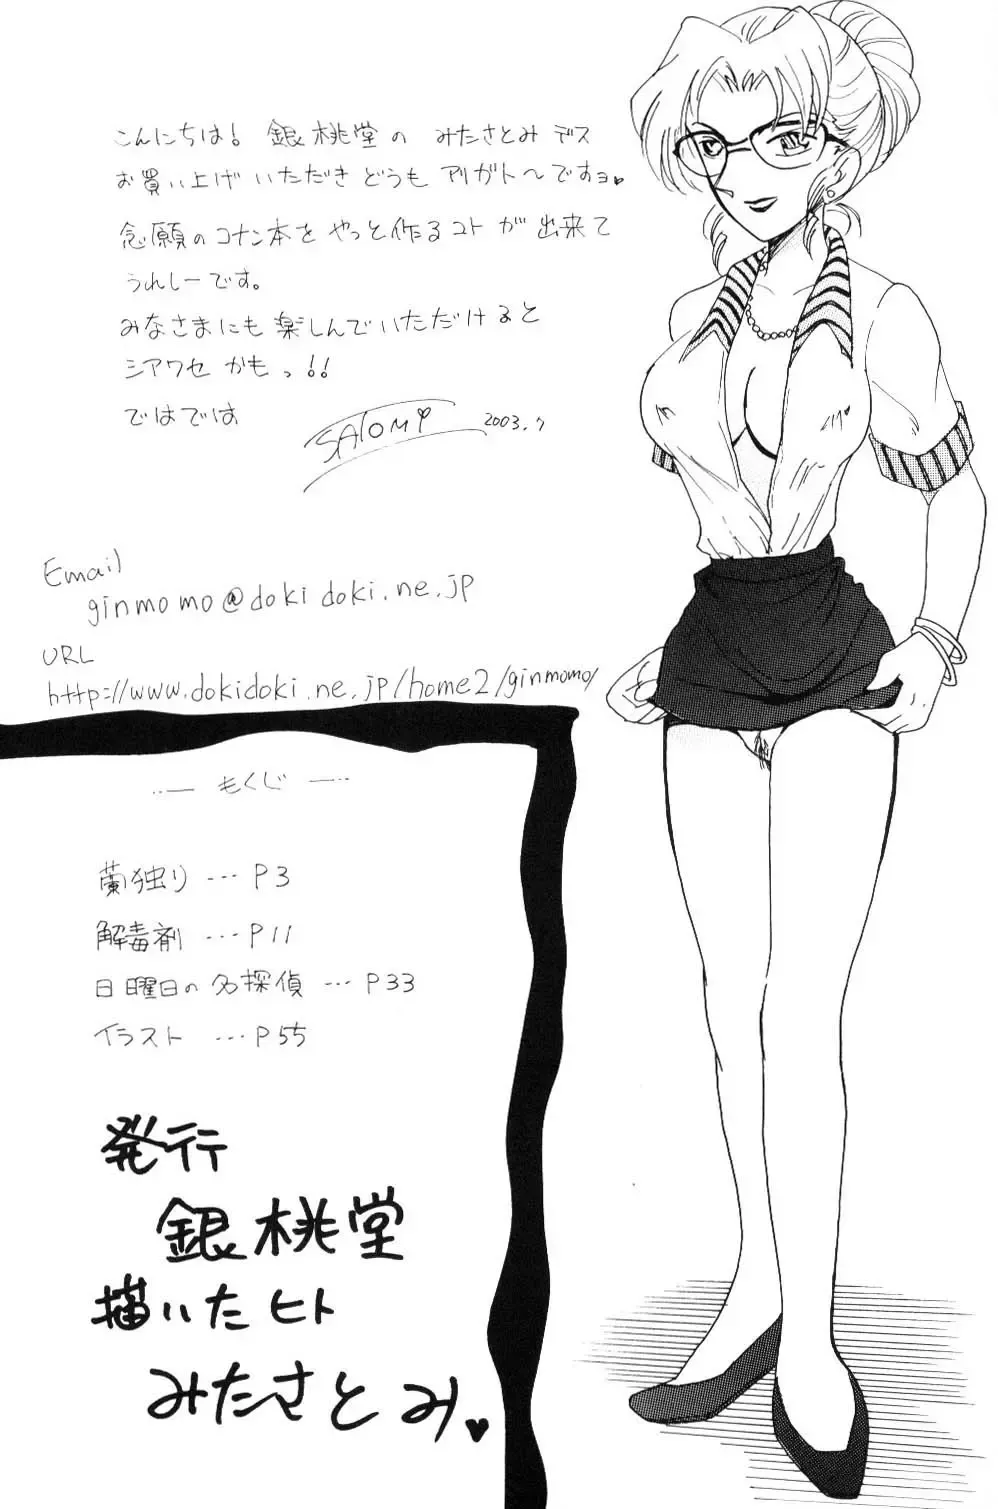 こんにちは! 銀桃堂の みたさとみ デス
お買い上げ いただき どうも アリガト〜ですョ♥
念願のコナン本を やっと作るコト が 出来て
うれしーです。
みなさまにも 楽しんでいただけると
シアワセ かもっ!!
ではでは
SATOMI 2003.7
Email
ginmomo@dokidoki.ne.jp
URL
http://www.dokidoki.ne.jp/home2/ginmomo/
もくじ
蘭独り … P3
解毒剤 … P11
日曜日の名探偵 … P33
イラスト … P55
発行
銀桃堂
描いたヒト
みたさとみ♥